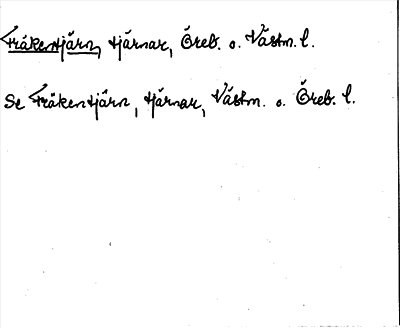 Fräkentjärn, tjärnar, Öreb. o. Västm. l.
Se Fräkentjärn, tjärnar, Västm. o. Öreb. l.